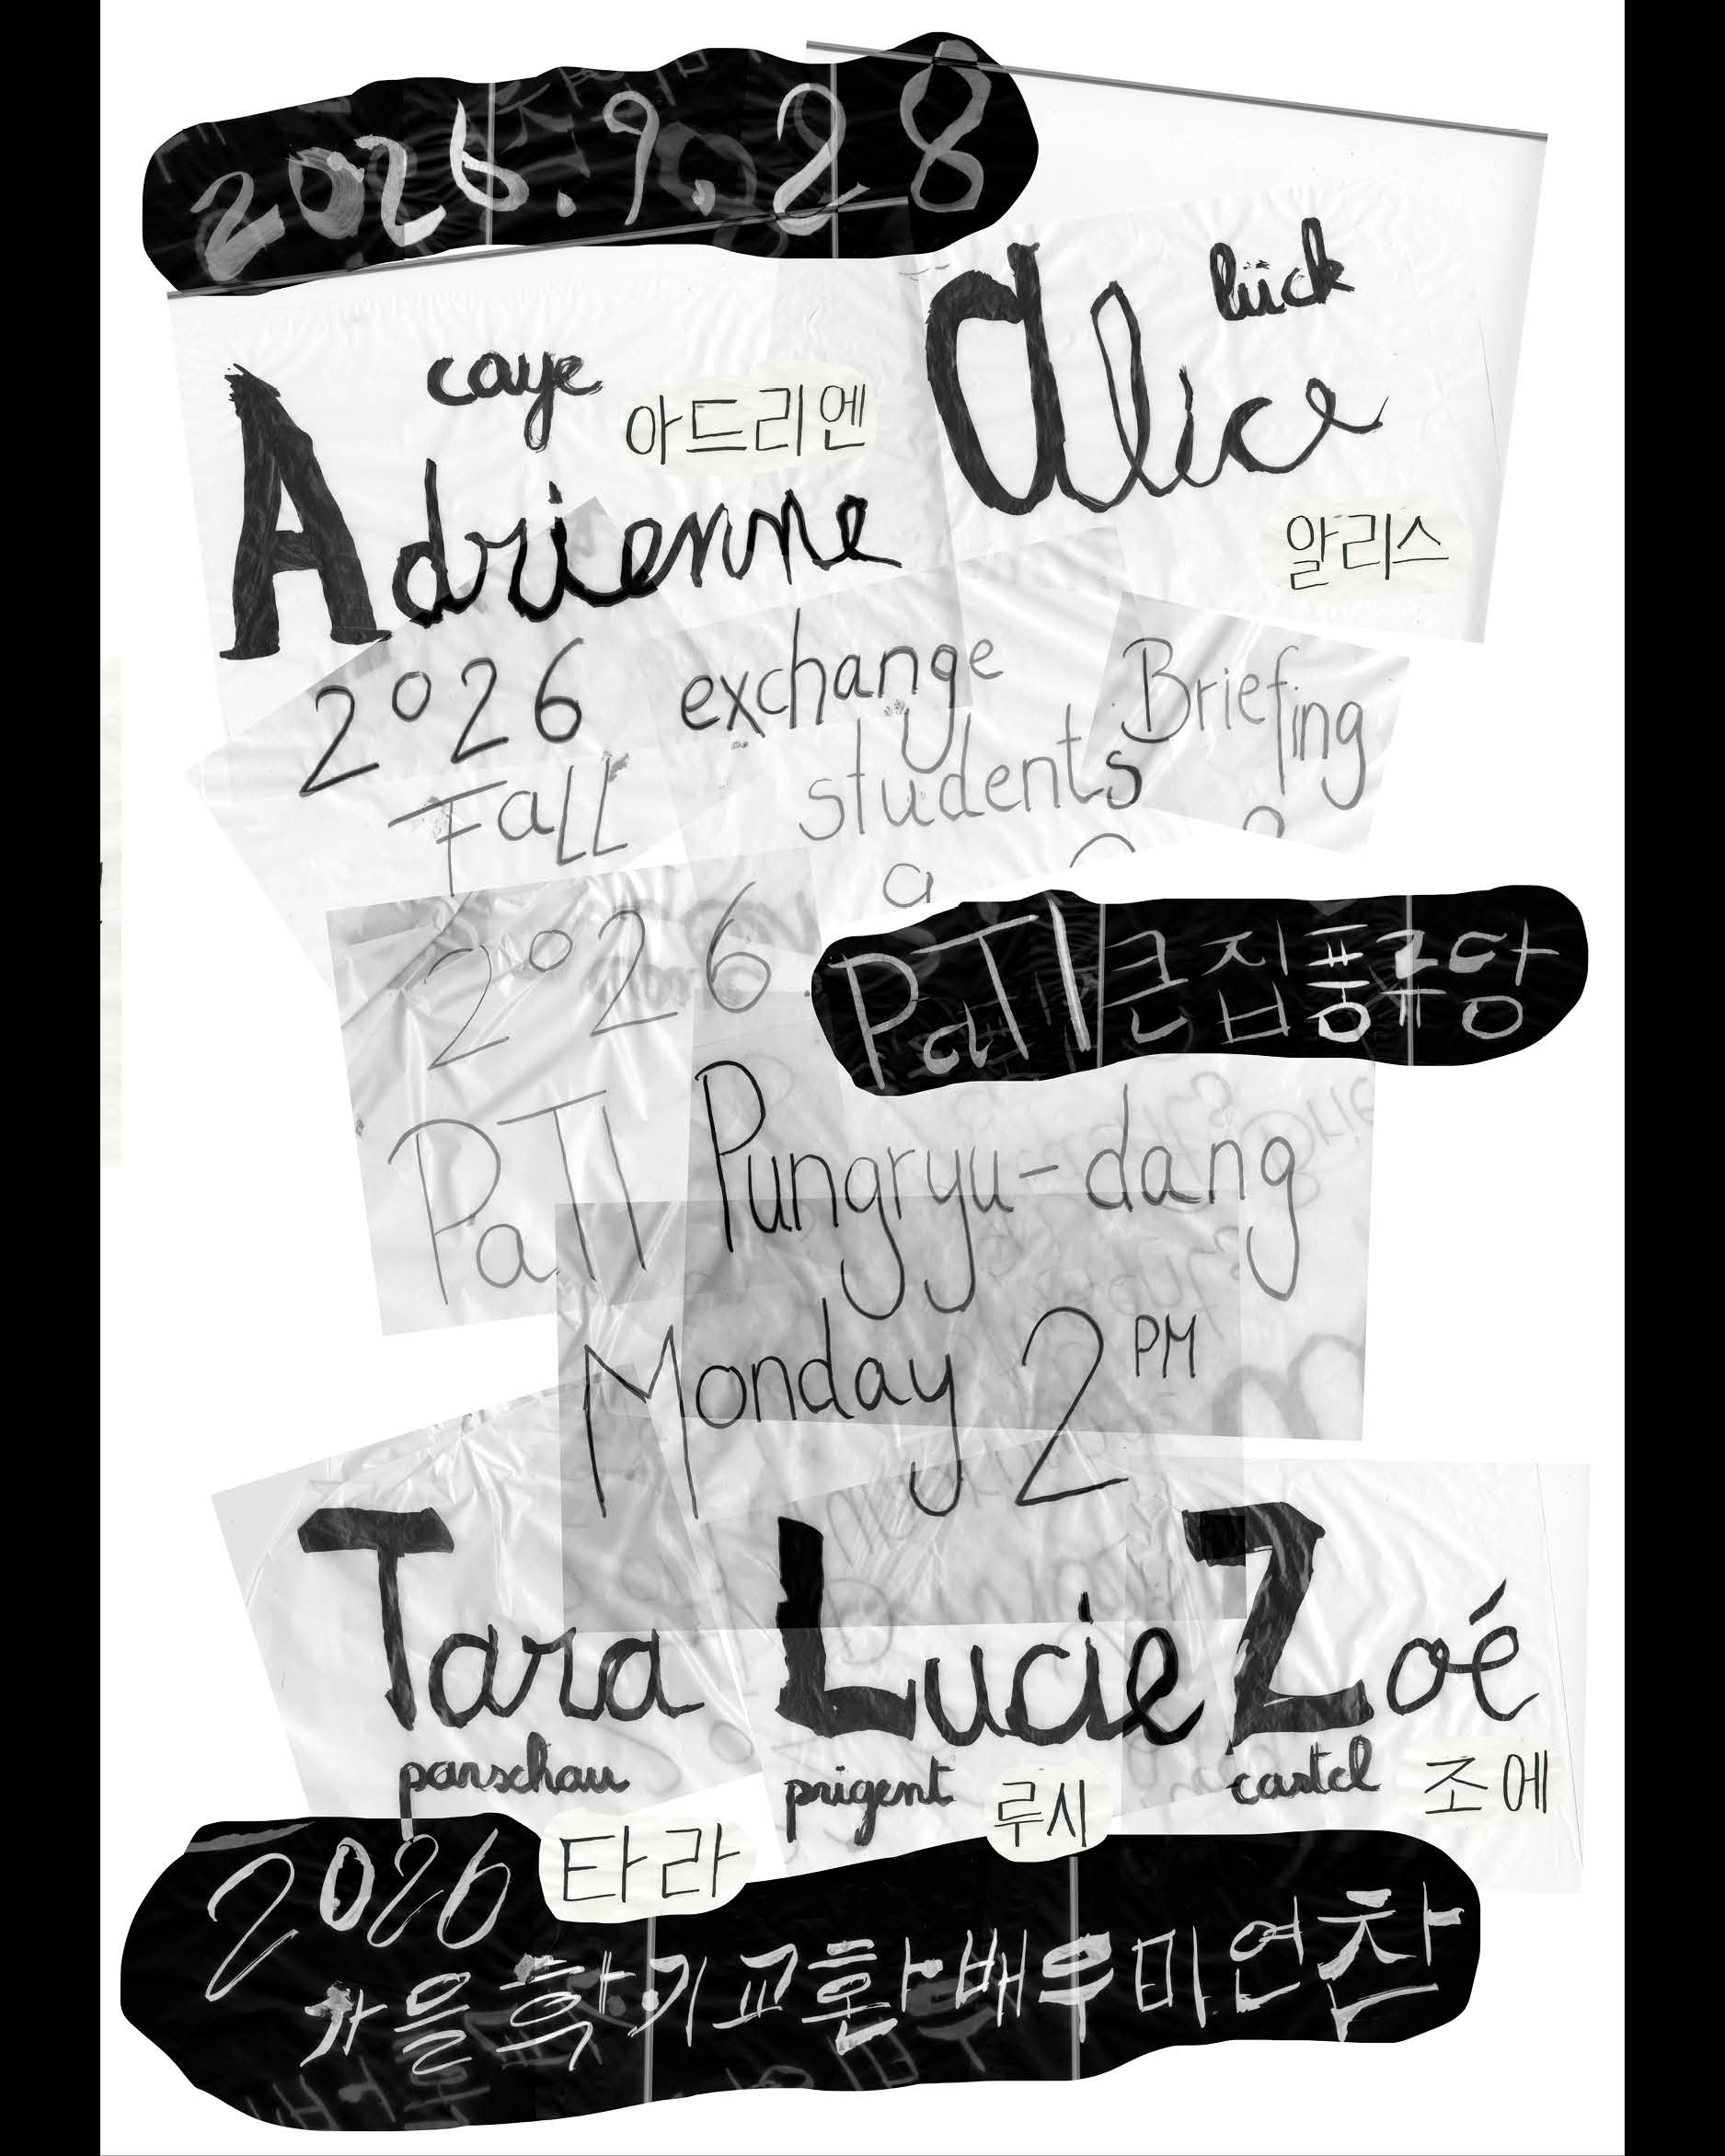 2026.9.28
Alice lück
알리스
caye
아드리엔
Adrienne
2026 exchange Briefing
Fall students
2026
PaTI 큰집풍류당
PaTI Pungryu-dang
Monday 2 PM
Tara Lucie Zoé
parschau prigent castel 조에
타라 루시
2026
가을학기교환배우미연찬